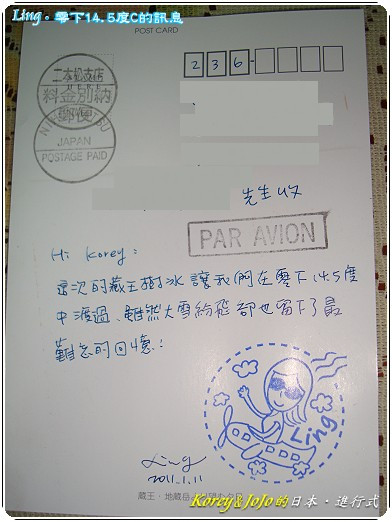 Ling。零下14.5度C的訊息
POST CARD
236-
二本松支店
料金別納
郵便
NIHONMATSU
JAPAN
POSTAGE PAID
先生收
PAR AVION
Hi Korey:
這次的藏王樹冰讓我們在零下14.5度
中渡過、雖然大雪紛飛卻也留下了最
難忘的回憶!
Ling
Ling
2011.1.11
蔵王・地蔵岳
Korey&JoJo的日本・進行式